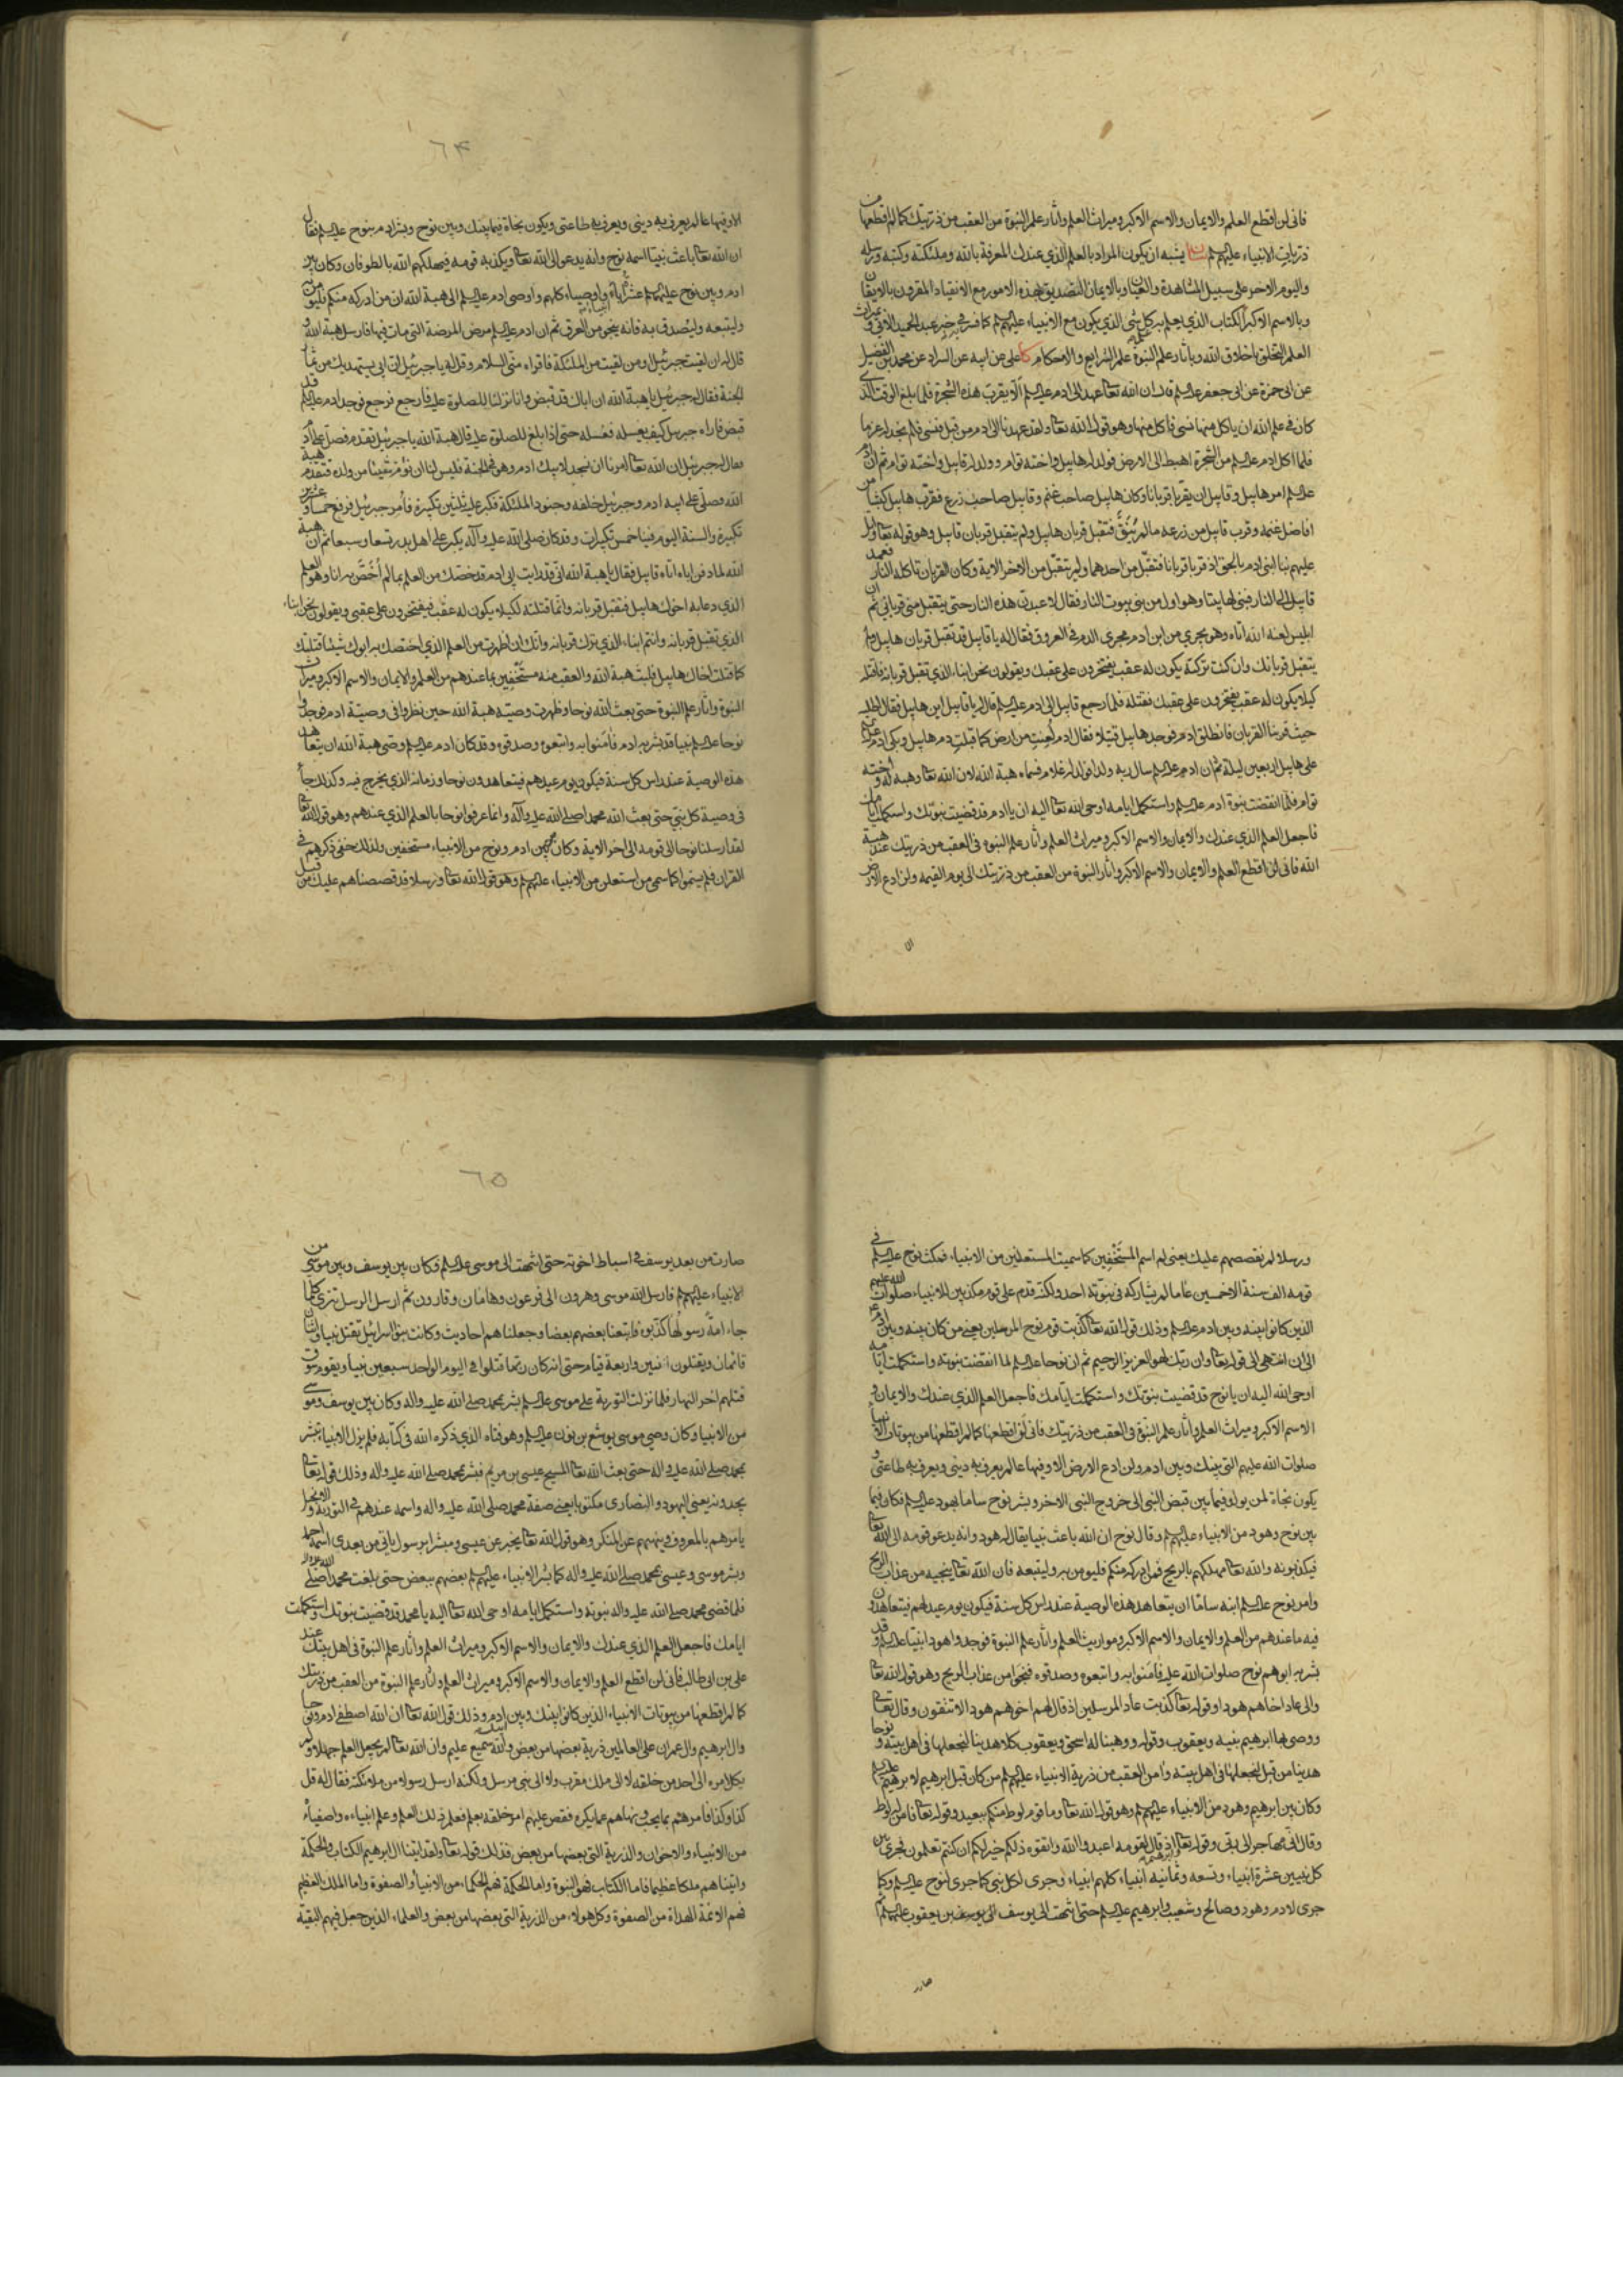 فانی لن اقطع العلم والایمان والاسم الاکبر ومیراث العلم واثار علم النبوة من العقب من ذریتک کما لم اقطعها من
ذریات الانبیاء علیهم یشبه ان یکون المراد بالعلم الذی عندک المعرفة بالله وملئکته وکتبه ورسله
والیوم الاخر علی سبیل المشاهدة والعیان وبالایمان التصدیق بهذه الامور مع الانقیاد المقرون بالایقان
وبالاسم الاکبر الکتاب الذی یعلم به کل شئ الذی یکون مع الانبیاء علیهم کما فسر فی خبر عبد الحمید الاتی و میراث
العلم التخلق باخلاق الله وباثار علم النبوة علم الشرایع والاحکام کا علی عن ابیه عن السراد عن محمد بن الفضیل
عن ابی حمزة عن ابی جعفر علیه السلم قال ان الله تعا عهد الی ادم علیه السلم الّا یقرب هذه الشجرة فلما بلغ الوقت الذی
کان فی علم الله ان یاکل منها نسی فاکل منها وهو قول الله تعا ولقد عهدنا الی ادم من قبل فنسی فلم نجد له عزما
فلما اکل ادم علیه السلم من الشجرة اهبط الی الارض فولد له هابیل واخته توام وولد له قابیل واخته توام ثم ان ادم
علیه السلم امر هابیل وقابیل ان یقربا قربانا وکان هابیل صاحب غنم وقابیل صاحب زرع فقرب هابیل کبشا من
افاضل غنمه وقرب قابیل من زرعه مالم ینق فتقبل قربان هابیل ولم یتقبل قربان قابیل وهو قوله تعا واتل
علیهم نبا ابنی ادم بالحق اذ قربا قربانا فتقبل من احدهما ولم یتقبل من الاخر الایة وکان القربان تاکله النار فعمد
قابیل الی النار فبنی لها بیتا وهو اول من بنی بیوت النار فقال لاعبدن هذه النار حتی یتقبل منی قربانی ثم ان
ابلیس لعنه الله اتاه وهو یجری من ابن ادم مجری الدم فی العروق فقال له یا قابیل قد تقبل قربان هابیل ولم
یتقبل قربانک وانک ان ترکته یکون له عقب یفتخرون علی عقبک ویقولون نحن ابناء الذی تقبل قربانه فاقتله
کیلا یکون له عقب یفتخرون علی عقبک فقتله فلما رجع قابیل الی ادم علیه السلم قال له یا قابیل این هابیل فقال اطلبه
حیث قربنا القربان فانطلق ادم فوجد هابیل قتیلا فقال ادم لعنت من ارض کما قبلت دم هابیل وبکی ادم علیه السلم
علی هابیل اربعین لیلة ثم ان ادم علیه السلم سال ربه ولدا فولد له غلام فسماه هبة الله لان الله تعا وهبه له واخته
توام فلما انقضت نبوة ادم علیه السلم واستکمل ایامه اوحی الله تعا الیه ان یا ادم قد قضیت نبوتک واستکملت ایامک
فاجعل العلم الذی عندک والایمان والاسم الاکبر ومیراث العلم واثار علم النبوة فی العقب من ذریتک عند هبة
الله فانی لن اقطع العلم والایمان والاسم الاکبر واثار النبوة من العقب من ذریتک الی یوم القیمه ولن ادع الارض
الا
٦٤
الا وفیها عالم یعرف به دینی ویعرف به طاعتی ویکون نجاة فیما بینک وبین نوح وبشر ادم بنوح علیه السلم فقال
ان الله تعا باعث نبیا اسمه نوح وانه یدعو الی الله تعا ویکذبه قومه فیهلکهم الله بالطوفان وکان بین
ادم وبین نوح علیهم عشرة اباء انبیاء واوصیاء کلهم واوصی ادم علیه السلم الی هبة الله ان من ادرکه منکم فلیؤمن
ولیتبعه ولیصدق به فانه ینجو من الغرق ثم ان ادم علیه السلم مرض المرضة التی مات فیها فارسل هبة الله و
قال له ان لقیت جبرئیل ومن لقیت من الملئکة فاقراه منی السلام وقل له یا جبرئیل ان ابی یستهدیک من ثمار
الجنة فقال له جبرئیل یا هبة الله ان اباک قد قبض وانا نزلنا للصلوة علیه فارجع فرجع فوجد ادم علیه السلم قد
قبض فاراه جبرئیل کیف یغسله فغسله حتی اذا بلغ للصلوة علیه قال هبة الله یا جبرئیل تقدم فصل علی ادم
فقال له جبرئیل ان الله تعا امرنا ان نسجد لابیک ادم وهو فی الجنة فلیس لنا ان نؤم شیئا من ولده فتقدم هبة
الله فصلی علی ابیه ادم وجبرئیل خلفه وجنود الملئکة فکبر علیه ثلثین تکبیرة فامر جبرئیل فرفع خمسا وعشرین
تکبیرة والسنة الیوم فینا خمس تکبیرات وقد کان صلی الله علیه وآله یکبر علی اهل بدر تسعا وسبعا ثم ان هبة
الله لما دفن اباه اتاه قابیل فقال یا هبة الله انی قد رایت ابی ادم قد خصک من العلم بما لم اخص به انا وهو العلم
الذی دعا به اخوک هابیل فتقبل قربانه وانما قتلته لکیلا یکون له عقب فیفتخرون علی عقبی ویقولون نحن ابناء
الذی تقبل قربانه وانتم ابناء الذی ترک قربانه وانک ان اظهرت من العلم الذی اختصک به ابوک شیئا قتلتک
کما قتلت اخاک هابیل فلبث هبة الله والعقب منه مستخفین بما عندهم من العلم والایمان والاسم الاکبر ومیراث
النبوة واثار علم النبوة حتی بعث الله نوحا وظهرت وصیة هبة الله حین نظروا فی وصیة ادم فوجدوا
نوحا علیه السلم نبیا قد بشر به ادم فامنوا به واتبعوه وصدقوه وقد کان ادم علیه السلم وصی هبة الله ان یتعاهد
هذه الوصیة عند راس کل سنة فیکون یوم عیدهم فیتعاهدون نوحا وزمانه الذی یخرج فیه وکذلک جاء
فی وصیة کل نبی حتی بعث الله محمدا صلی الله علیه وآله وانما عرفوا نوحا بالعلم الذی عندهم وهو قول الله تعا
لقد ارسلنا نوحا الی قومه الی اخر الایة وکان من بین ادم ونوح من الانبیاء مستخفین ولذلک خفی ذکرهم فی
القران فلم یسموا کما سمی من استعلن من الانبیاء علیهم وهو قول الله تعا ورسلا قد قصصناهم علیک من قبل
ورسلا لم نقصصهم علیک یعنی لم اسم المستخفین کما سمیت المستعلنین من الانبیاء فمکث نوح علیه السلم فی
قومه الف سنة الا خمسین عاما لم یشارکه فی نبوته احد ولکنه قدم علی قوم مکذبین للانبیاء صلوات الله علیهم
الذین کانوا بینه وبین ادم علیه السلم وذلک قول الله تعا کذبت قوم نوح المرسلین یعنی من کان بینه وبین ادم
الی ان انتهی الی قوله تعا وان ربک لهو العزیز الرحیم ثم ان نوحا علیه السلم لما انقضت نبوته واستکملت ایامه
اوحی الله الیه ان یا نوح قد قضیت نبوتک واستکملت ایامک فاجعل العلم الذی عندک والایمان و
الاسم الاکبر ومیراث العلم واثار علم النبوة فی العقب من ذریتک فانی لن اقطعها کما لم اقطعها من بیوتات الانبیاء
صلوات الله علیهم التی بینک وبین ادم ولن ادع الارض الا وفیها عالم یعرف به دینی ویعرف به طاعتی و
یکون نجاة لمن یولد فیما بین قبض النبی الی خروج النبی الاخر وبشر نوح ساما بهود علیه السلم فکان فیما
بین نوح وهود من الانبیاء علیهم وقال نوح ان الله باعث نبیا یقال له هود وانه یدعو قومه الی الله تعا
فیکذبونه والله تعا مهلکهم بالریح فمن ادرکه منکم فلیومن به ولیتبعه فان الله تعا ینجیه من عذاب الریح
وامر نوح علیه السلم ابنه ساما ان یتعاهد هذه الوصیة عند راس کل سنة فیکون یوم عید لهم فیتعاهدون
فیه ما عندهم من العلم والایمان والاسم الاکبر ومواریث العلم واثار علم النبوة فوجدوا هودا نبیا علیه السلم وقد
بشر به ابوهم نوح صلوات الله علیه فامنوا به واتبعوه وصدقوه فنجوا من عذاب الریح وهو قول الله تعا
والی عاد اخاهم هودا وقوله تعا کذبت عاد المرسلین اذ قال لهم اخوهم هود الا تتقون وقال تعا
ووصی بها ابرهیم بنیه ویعقوب وقوله ووهبنا له اسحق ویعقوب کلا هدینا لنجعلها فی اهل بیته ونوحا
هدینا من قبل لنجعلها فی اهل بیته وامن العقب من ذریة الانبیاء علیهم من کان قبل ابرهیم لابرهیم علیه السلم
وکان بین ابرهیم وهود من الانبیاء علیهم وهو قول الله تعا وما قوم لوط منکم ببعید وقوله تعا فامن له لوط
وقال انی مهاجر الی ربی وقوله تعا وابرهیم اذ قال لقومه اعبدوا الله واتقوه ذلکم خیر لکم ان کنتم تعلمون فجری بین
کل نبیین عشرة انبیاء وتسعه وثمانیه انبیاء کلهم انبیاء وجری لکل نبی کما جری لنوح علیه السلم وکما
جری لادم وهود وصالح وشعیب وابرهیم علیه السلم حتی انتهت الی یوسف بن یعقوب علیهما السلم ثم
صارت
٦٥
صارت من بعد یوسف فی اسباط اخوته حتی انتهت الی موسی علیه السلم فکان بین یوسف وبین موسی من
الانبیاء علیهم فارسل الله موسی وهرون الی فرعون وهامان وقارون ثم ارسل الرسل تتری کلما
جاء امة رسولها کذبوه فاتبعنا بعضهم بعضا وجعلناهم احادیث وکانت بنو اسرائیل تقتل نبیا واثنان
قائمان ویقتلون اثنین واربعة قیام حتی انه کان ربما قتلوا فی الیوم الواحد سبعین نبیا ویقوم سوق
قتلهم اخر النهار فلما نزلت التوریة علی موسی علیه السلم بشر بمحمد صلی الله علیه واله وکان بین یوسف وموسی
من الانبیاء وکان وصی موسی یوشع بن نون علیه السلم وهو فتاه الذی ذکره الله فی کتابه فلم یزل الانبیاء تبشر
بمحمد صلی الله علیه واله حتی بعث الله تعا المسیح عیسی بن مریم فبشر بمحمد صلی الله علیه واله وذلک قوله تعا
یجدونه یعنی الیهود والنصاری مکتوبا یعنی صفة محمد صلی الله علیه واله واسمه عندهم فی التوریة والانجیل
یامرهم بالمعروف وینهیهم عن المنکر وهو قول الله تعا یخبر عن عیسی ومبشرا برسول یاتی من بعدی اسمه احمد
وبشر موسی وعیسی بمحمد صلی الله علیه واله کما بشر الانبیاء علیهم بعضهم ببعض حتی بلغت محمدا صلی الله علیه واله
فلما قضی محمد صلی الله علیه واله نبوته واستکمل ایامه اوحی الله تعا الیه یا محمد قد قضیت نبوتک واستکملت
ایامک فاجعل العلم الذی عندک والایمان والاسم الاکبر ومیراث العلم واثار علم النبوة فی اهل بیتک عند
علی بن ابی طالب فانی لن اقطع العلم والایمان والاسم الاکبر ومیراث العلم واثار علم النبوة من العقب من ذریتک
کما لم اقطعها من بیوتات الانبیاء الذین کانوا بینک وبین ابیک ادم وذلک قول الله تعا ان الله اصطفی ادم ونوحا
وال ابرهیم وال عمران علی العالمین ذریة بعضها من بعض والله سمیع علیم وان الله تعا لم یجعل العلم جهلا ولم
یکل امره الی احد من خلقه لا الی ملک مقرب ولا الی نبی مرسل ولکنه ارسل رسولا من ملائکته فقال له قل
کذا وکذا فامرهم بما یحب ونهاهم عما یکره فقص علیهم امر خلقه بعلم فعلم ذلک العلم وعلم انبیاءه واصفیاءه
من الانبیاء والاخوان والذریة التی بعضها من بعض فذلک قوله تعا ولقد اتینا ال ابرهیم الکتاب والحکمة
واتیناهم ملکا عظیما فاما الکتاب فهو النبوة واما الحکمة فهم الحکماء من الانبیاء والصفوة واما الملک العظیم
فهم الائمة الهداة من الصفوة وکل هولاء من الذریة التی بعضها من بعض والعلماء الذین جعل فیهم البقیة